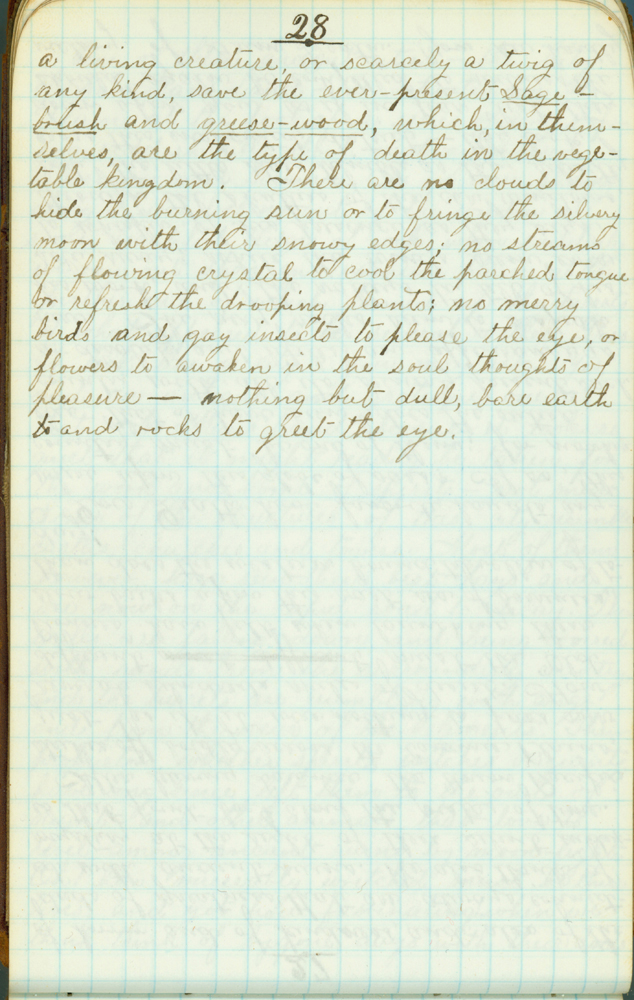 28
a living creature, or scarcely a twig of
any kind, save the ever-present Sage-
brush and greese-wood, which, in them-
selves, are the type of death in the vege-
table kingdom. There are no clouds to
hide the burning sun or to fringe the silvery
moon with their snowy edges; no streams
of flowing crystal to cool the parched tongue
or refresh the drooping plants; no merry
birds and gay insects to please the eye, or
flowers to awaken in the soul thoughts of
pleasure — nothing but dull, bare earth
and rocks to greet the eye.